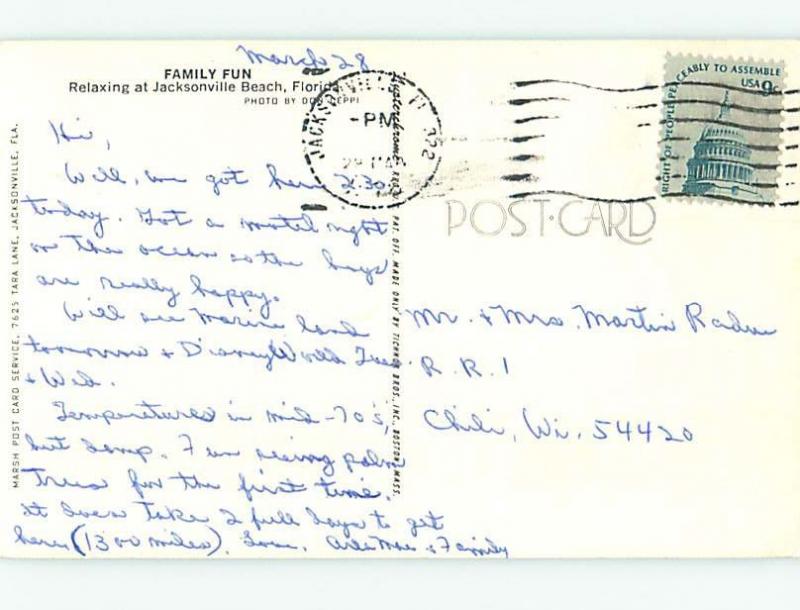 March 28
FAMILY FUN
Relaxing at Jacksonville Beach, Florida
PHOTO BY DON CEPPI
Hi,
Well, we got here 2:30
today. Got a motel right
on the ocean so the boys
are really happy.
Will see Marine land
tomorrow & DisneyWorld Tues
& Wed.
Temperatures in mid-70's,
but damp. Fun seeing palm
trees for the first time.
It does take 2 full days to get
here (1300 miles). Love, & Family
MARSH POST CARD SERVICE, 7625 TARA LANE, JACKSONVILLE, FLA.
PAT. OFF. MADE ONLY BY TICHNOR BROS., INC., BOSTON, MASS.
JACKSONVILLE, FL 322
-PM
28 MAR
RIGHT OF PEOPLE PEACEABLY TO ASSEMBLE
USA 9c
POST CARD
Mr. & Mrs. Martin Raden
R.R. 1
Chili, Wi. 54420